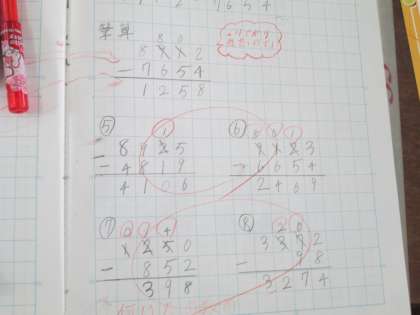 7654
筆算
8 0
8 9 1 2
− 7 6 5 4
1 2 5 8
⑤ 1
8 9 2 5
− 4 8 1 9
4 1 0 6
⑥ 8 0 1
9 1 2 3
− 6 6 5 4
2 4 6 9
⑦ 0 1 4
1 2 5 0
− 8 5 2
3 9 8
⑧ 2 6
3 3 7 2
− 9 8
3 2 7 4